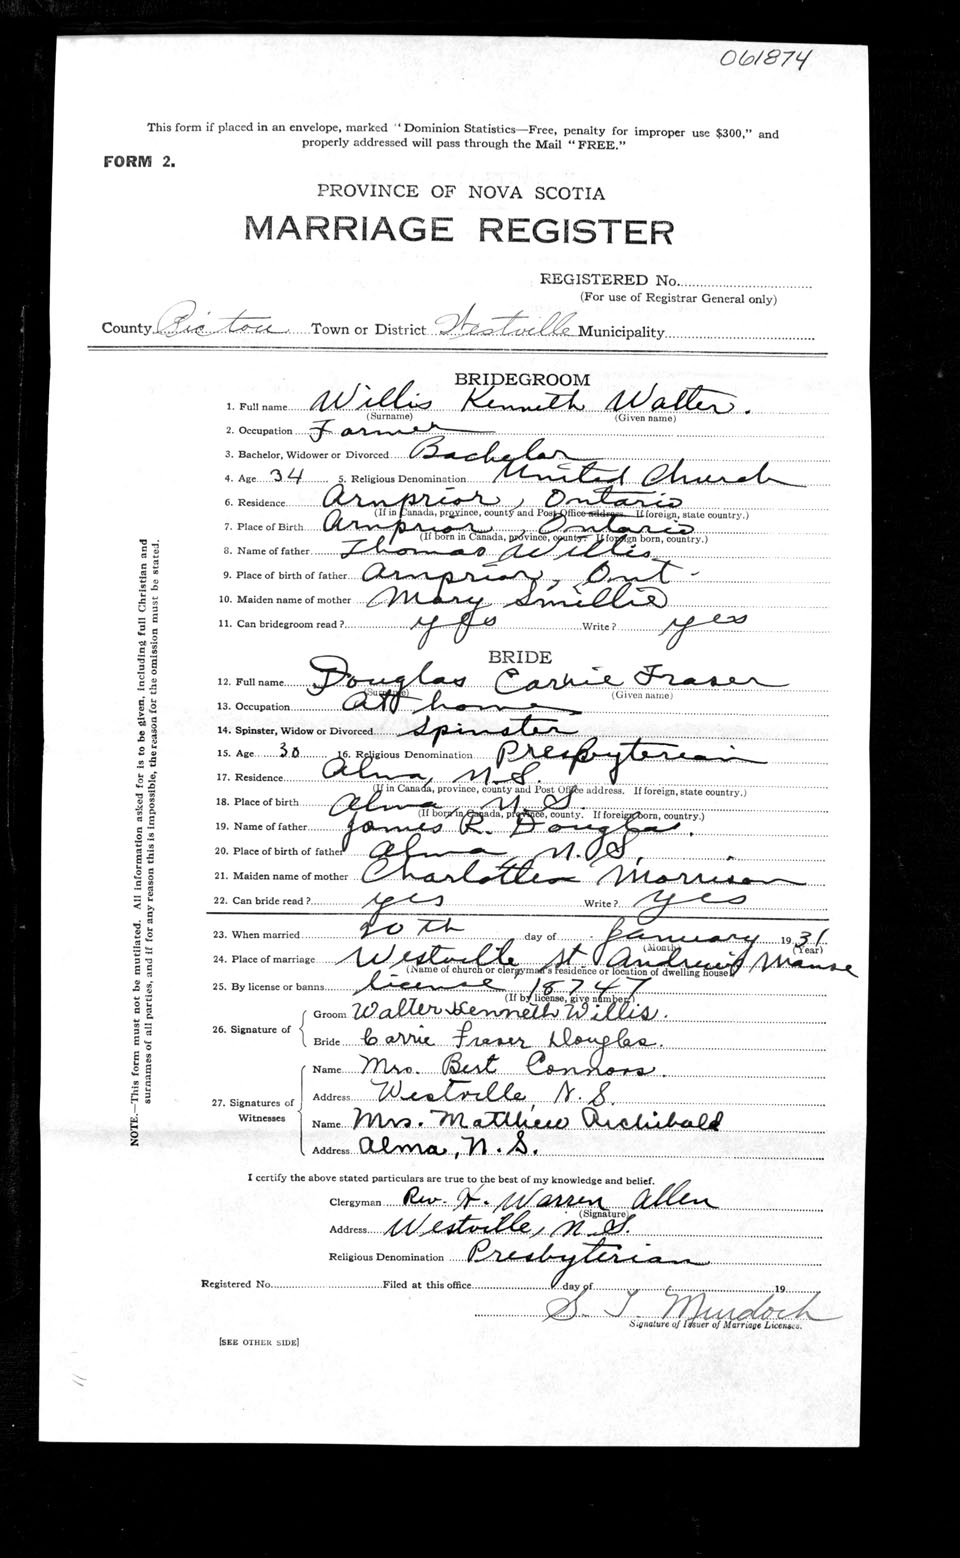 061874
This form if placed in an envelope, marked "Dominion Statistics—Free, penalty for improper use $300," and
properly addressed will pass through the Mail "FREE."
FORM 2.
PROVINCE OF NOVA SCOTIA
MARRIAGE REGISTER
REGISTERED No.
(For use of Registrar General only)
County Pictou Town or District Westville Municipality
BRIDEGROOM
1. Full name Willis Kenneth Walter.
(Surname) (Given name)
2. Occupation Farmer
3. Bachelor, Widower or Divorced Bachelor
4. Age 34 5. Religious Denomination United Church
6. Residence Arnprior, Ontario
(If in Canada, province, county and Post Office address. If foreign, state country.)
7. Place of Birth Arnprior, Ontario
(If born in Canada, province, county. If foreign born, country.)
8. Name of father Thomas Willis
9. Place of birth of father Arnprior, Ont.
10. Maiden name of mother Mary Smillie
11. Can bridegroom read? yes Write? yes
BRIDE
12. Full name Douglas Carrie Fraser
(Surname) (Given name)
13. Occupation At home
14. Spinster, Widow or Divorced Spinster
15. Age 30 16. Religious Denomination Presbyterian
17. Residence Alma, N.S.
(If in Canada, province, county and Post Office address. If foreign, state country.)
18. Place of birth Alma, N.S.
(If born in Canada, province, county. If foreign born, country.)
19. Name of father James R. Douglas.
20. Place of birth of father Alma, N.S.
21. Maiden name of mother Charlotte Morrison
22. Can bride read? yes Write? yes
23. When married 20th day of January 1931
(Month) (Year)
24. Place of marriage Westville St Andrew's Manse
(Name of church or clergyman's residence or location of dwelling house)
25. By license or banns license 18747
(If by license, give number)
26. Signature of
Groom Walter Kenneth Willis.
Bride Carrie Fraser Douglas.
27. Signatures of Witnesses
Name Mrs. Bert Connors.
Address Westville, N.S.
Name Mrs. Matthew Archibald
Address Alma, N.S.
I certify the above stated particulars are true to the best of my knowledge and belief.
Clergyman Rev. H. Warren Allen
(Signature)
Address Westville, N.S.
Religious Denomination Presbyterian
Registered No. Filed at this office day of 19
S. T. Murdoch
Signature of Issuer of Marriage Licenses.
[SEE OTHER SIDE]
NOTE.—This form must not be mutilated. All information asked for is to be given, including full Christian and
surnames of all parties, and if for any reason this is impossible, the reason for the omission must be stated.